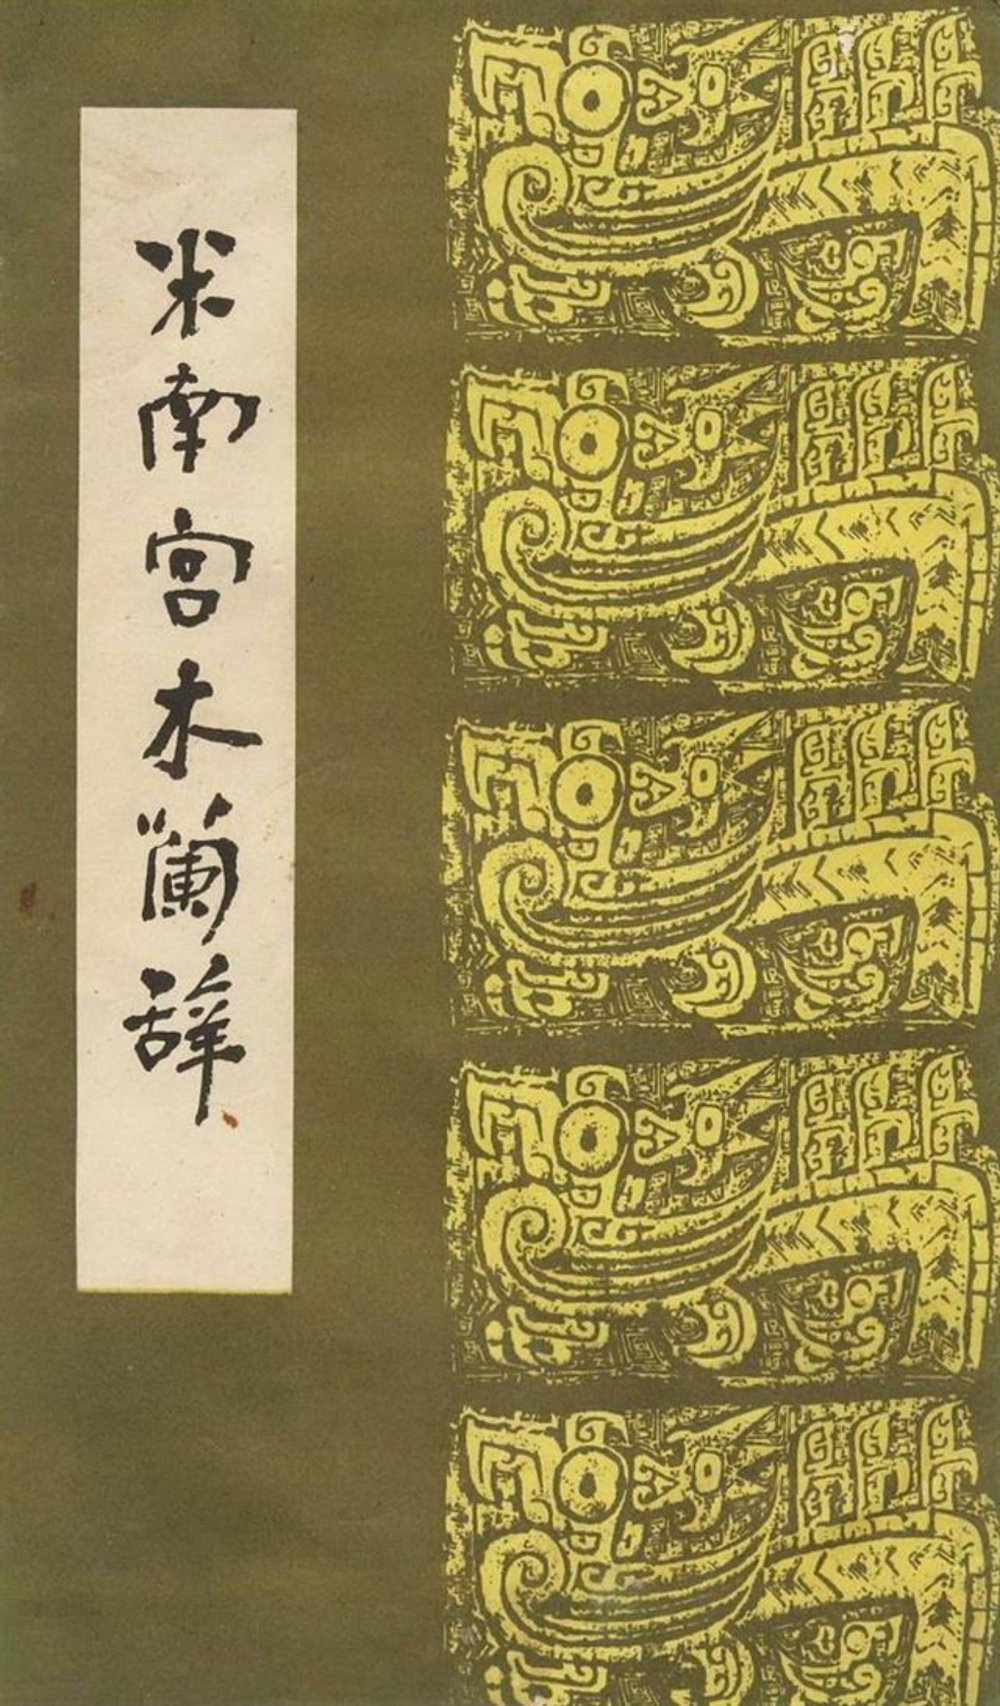 米南宫木蘭辞